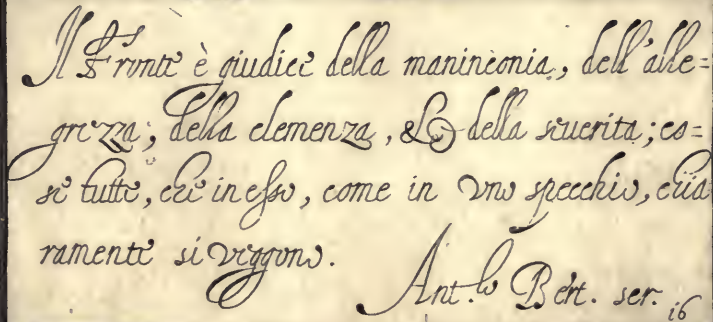 Il Fronte è giudice della maninconia, dell'alle=
grezza; della clemenza, & della seuerita; co=
sì tutte, che in esso, come in vno specchio, chia
ramente si veggono.
Ant.º Bert. scr.
i6